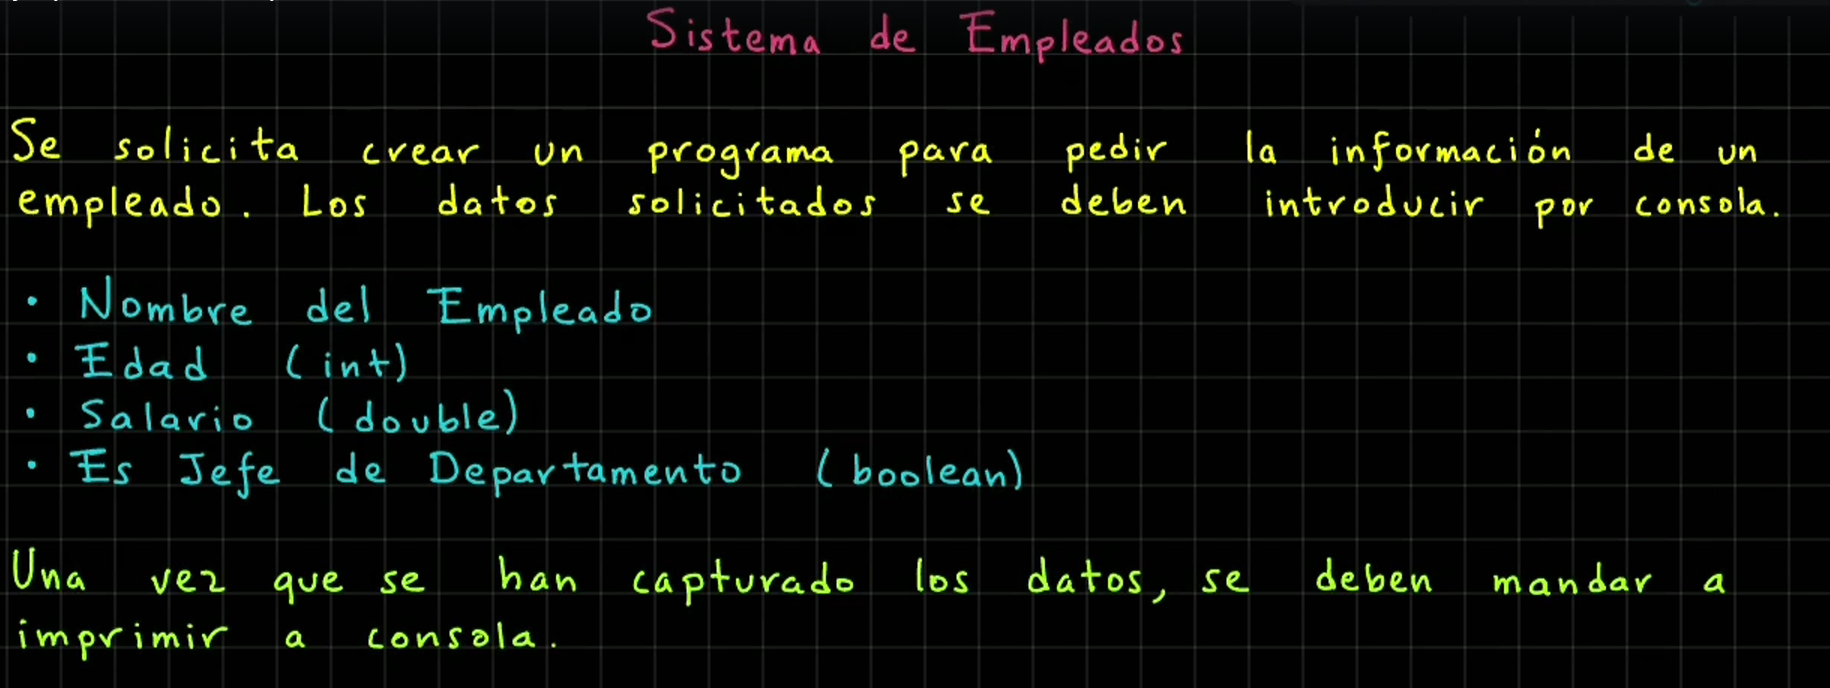 Sistema de Empleados
Se solicita crear un programa para pedir la información de un
empleado. Los datos solicitados se deben introducir por consola.
• Nombre del Empleado
• Edad (int)
• Salario (double)
• Es Jefe de Departamento (boolean)
Una vez que se han capturado los datos, se deben mandar a
imprimir a consola.